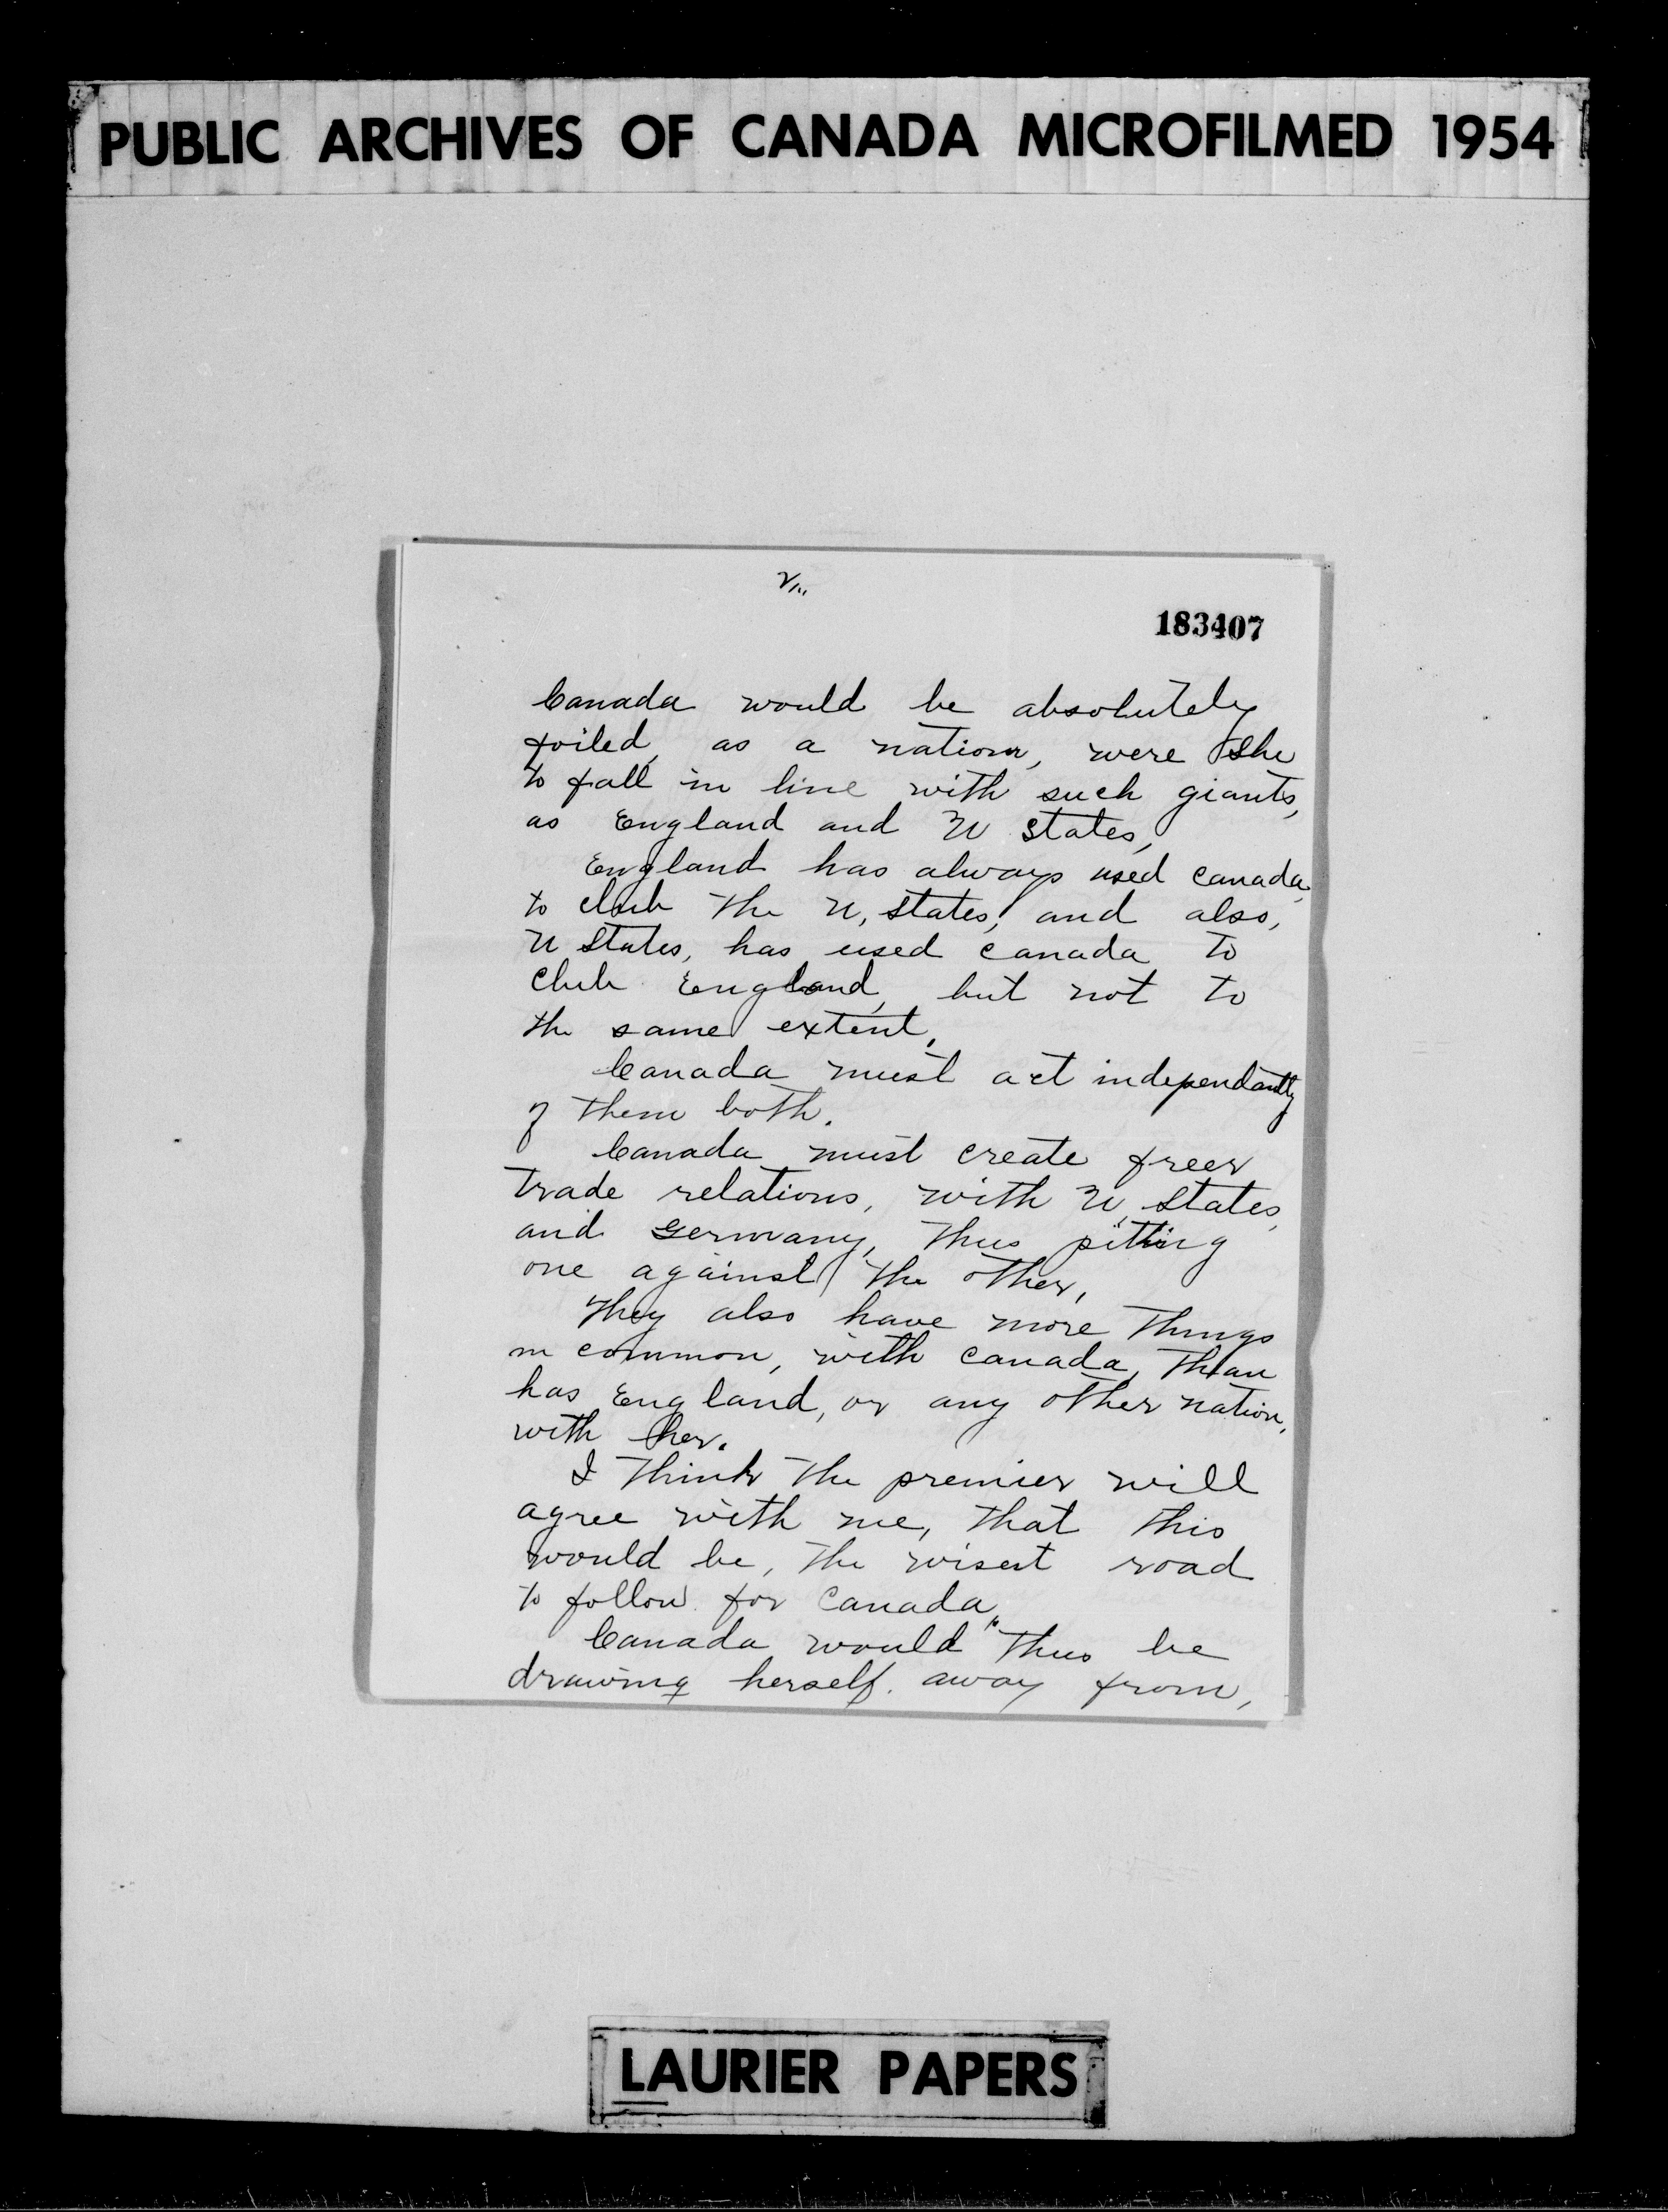 PUBLIC ARCHIVES OF CANADA MICROFILMED 1954
183407
Canada would be absolutely
foiled, as a nation, were she
to fall in line with such giants,
as England and U States,
England has always used Canada,
to club the U, States, and also,
U States, has used Canada to
club England, but not to
the same extent,
Canada must act independantly
of them both.
Canada must create freer
trade relations, with U, States,
and Germany, thus pitting
one against the other,
They also have more things
in common, with Canada, than
has England, or any other nation,
with her.
I think the premier will
agree with me, that this
would be, the wisest road
to follow for Canada,
Canada would thus be
drawing herself. away from,
LAURIER PAPERS